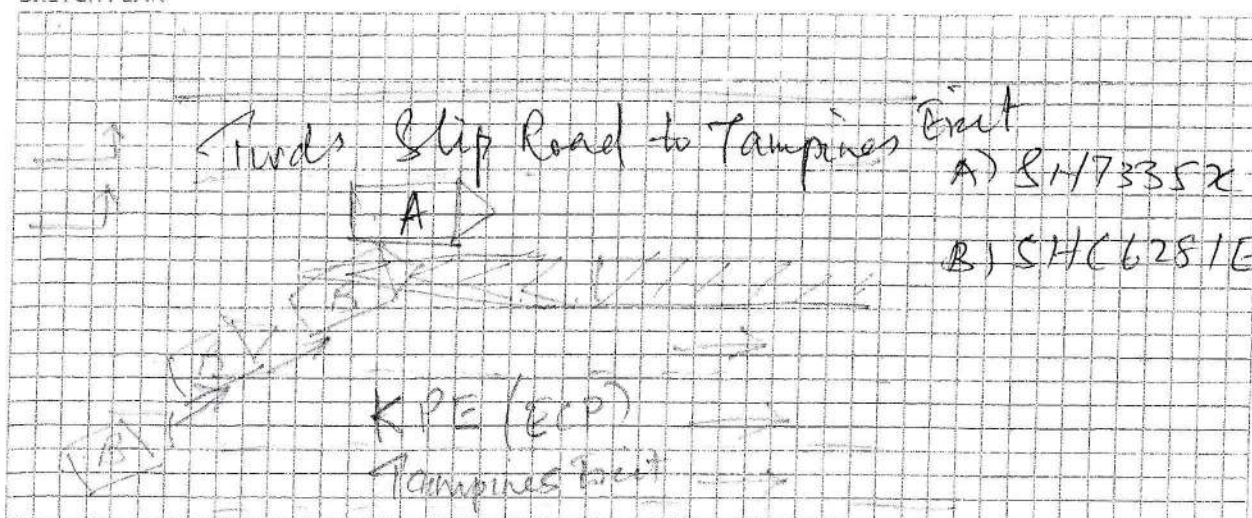 Twds Slip Road to Tampines Exit
A) SH7335X
A
B) SHC6281E
B
B
B
KPE (ECP)
Tampines Exit